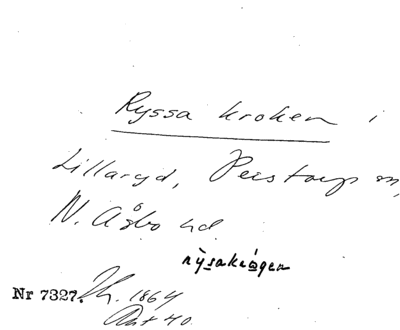 Ryssa kroken i
Lillaryd, Perstorp sn,
N. Åsbo hd
rysakrågen
Nr 7327. 1864
40